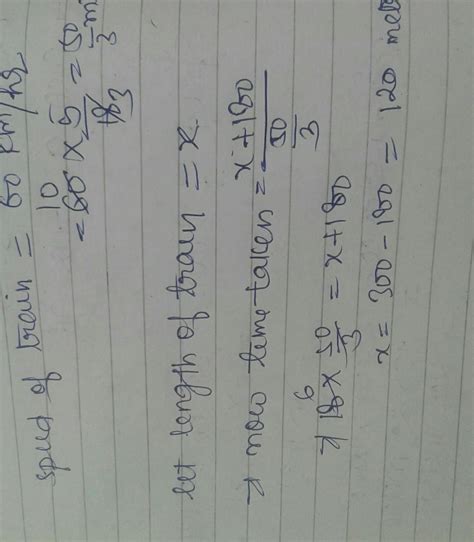 speed of train = 60 km/hr
= 60 × 5/18 = 50/3 m
10
3
let length of train = x
→ now time taken = x+180 / 50/3
→ 18 × 50/3 = x+180
6
x = 300 - 180 = 120 mete